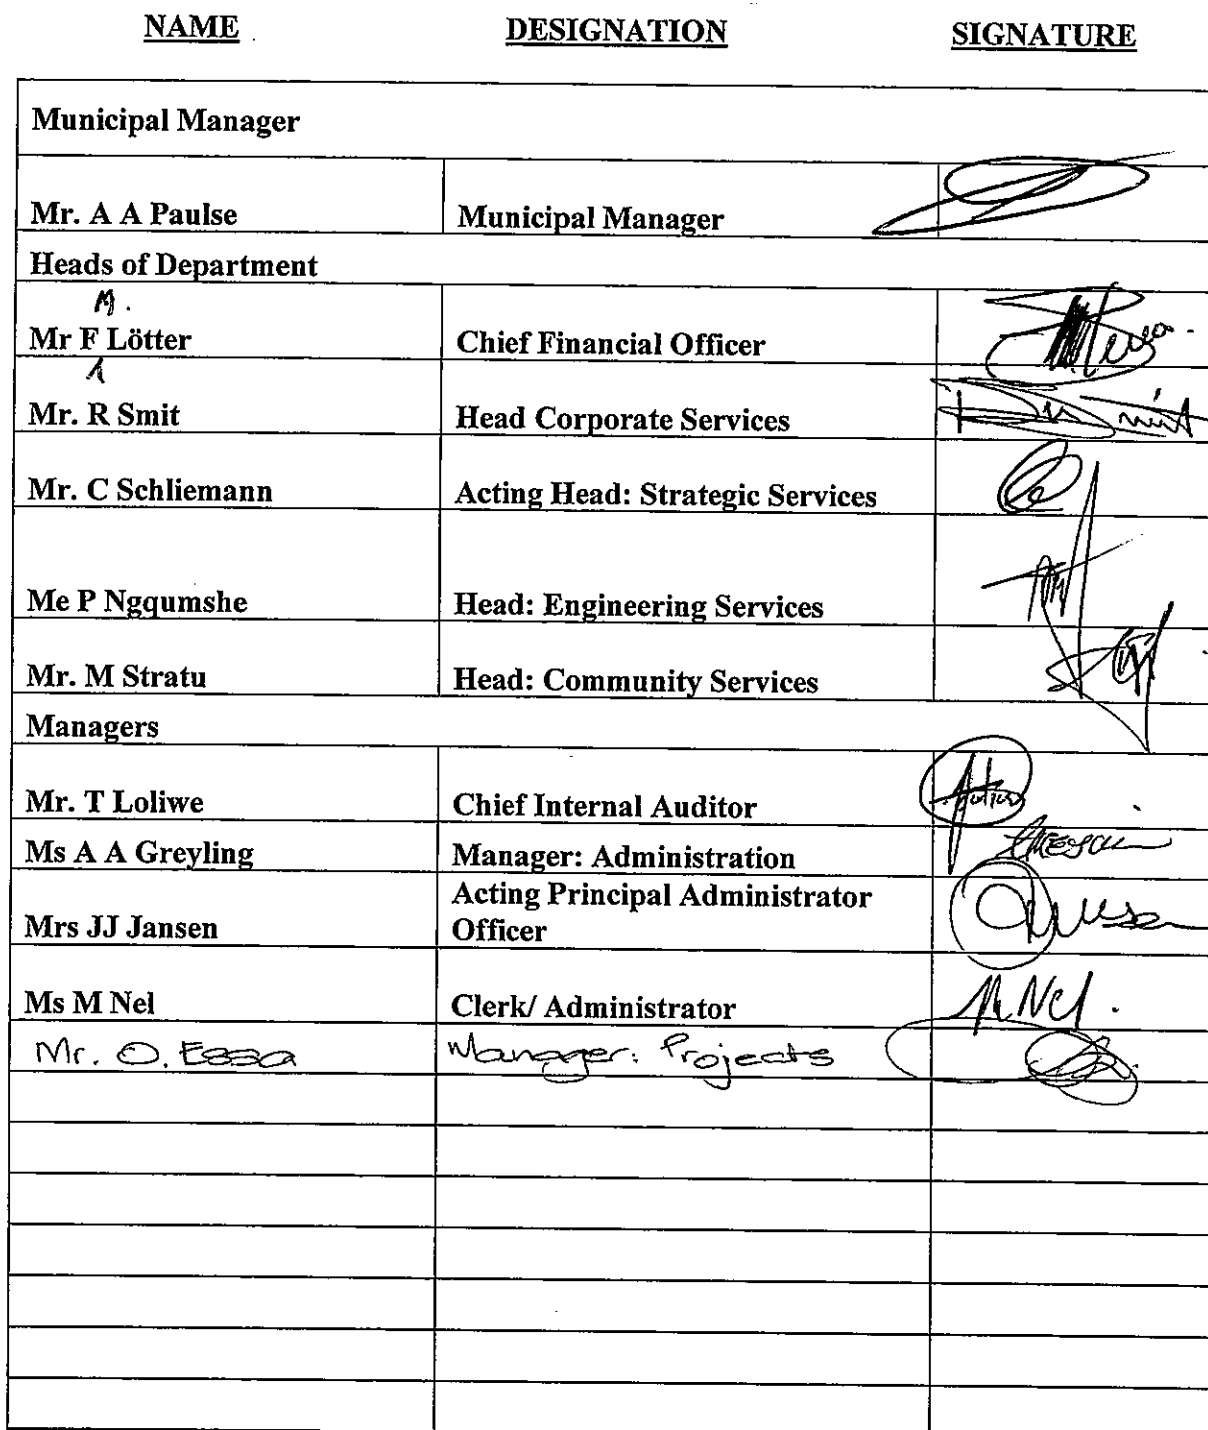 NAME DESIGNATION SIGNATURE
Municipal Manager
Mr. A A Paulse Municipal Manager
Heads of Department
M.
Mr F Lötter Chief Financial Officer
Mr. R Smit Head Corporate Services
Mr. C Schliemann Acting Head: Strategic Services
Me P Ngqumshe Head: Engineering Services
Mr. M Stratu Head: Community Services
Managers
Mr. T Loliwe Chief Internal Auditor
Ms A A Greyling Manager: Administration
Acting Principal Administrator
Mrs JJ Jansen Officer
Ms M Nel Clerk/ Administrator M Nel.
Mr. O. Essa Manager: Projects